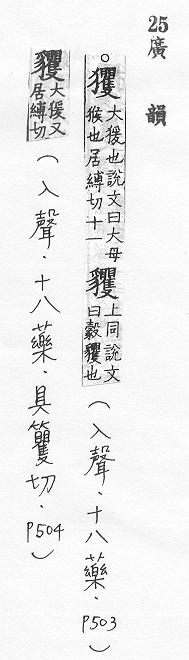 25廣韻
○玃大猨也說文曰大母猴也居縛切十一貜上同說文曰豰貜也（入聲．十八藥．P503）
貜大猨又居縛切（入聲．十八藥．具籰切．P504）